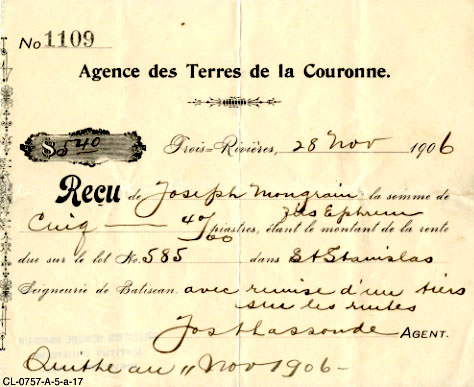 No 1109
Agence des Terres de la Couronne.
$5 40
Trois=Rivières, 28 Nov 1906
Reçu de Joseph Mongrain la somme de
fils Ephrem
Cinq — 40/100 piastres, étant le montant de la rente
due sur le lot No. 585 dans St Stanislas
Seigneurie de Batiscan. avec remise d'un tiers
sur les rentes
AGENT.
Quitte au 11 Nov 1906-
CL-0757-A-5-a-17